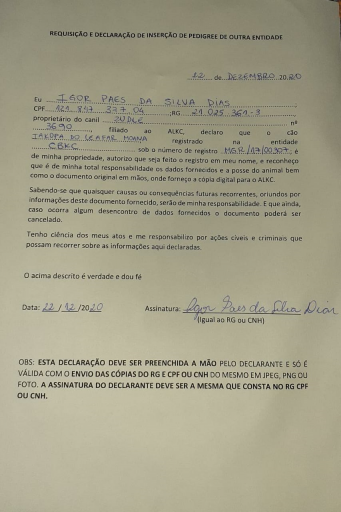 REQUISIÇÃO E DECLARAÇÃO DE INSERÇÃO DE PEDIGREE DE OUTRA ENTIDADE
22 de DEZEMBRO 2020
Eu IGOR PAES DA SILVA DIAS,
CPF 121.847.337.04 ;RG 21 025 361-3
proprietário do canil nº
3690, filiado ao ALKC, declaro que o cão
registrado na entidade
CBKC sob o número de registro MGR/17/00307, é
de minha propriedade, autorizo que seja feito o registro em meu nome, e reconheço
que é de minha total responsabilidade os dados fornecidos e a posse do animal bem
como o documento original em mãos, onde forneço a copia digital para o ALKC.
Sabendo-se que quaisquer causas ou consequências futuras recorrentes, oriundos por
informações deste documento fornecido, serão de minha responsabilidade. E que ainda,
caso ocorra algum desencontro de dados fornecidos o documento poderá ser
cancelado.
Tenho ciência dos meus atos e me responsabilizo por ações cíveis e criminais que
possam recorrer sobre as informações aqui declaradas.
O acima descrito é verdade e dou fé
Data: 22 / 12 /2020 Assinatura: Igor Paes da Silva Dias
(Igual ao RG ou CNH)
OBS: ESTA DECLARAÇÃO DEVE SER PREENCHIDA A MÃO PELO DECLARANTE E SÓ É
VÁLIDA COM O ENVIO DAS CÓPIAS DO RG E CPF OU CNH DO MESMO EM JPEG, PNG OU
FOTO. A ASSINATURA DO DECLARANTE DEVE SER A MESMA QUE CONSTA NO RG CPF
OU CNH.